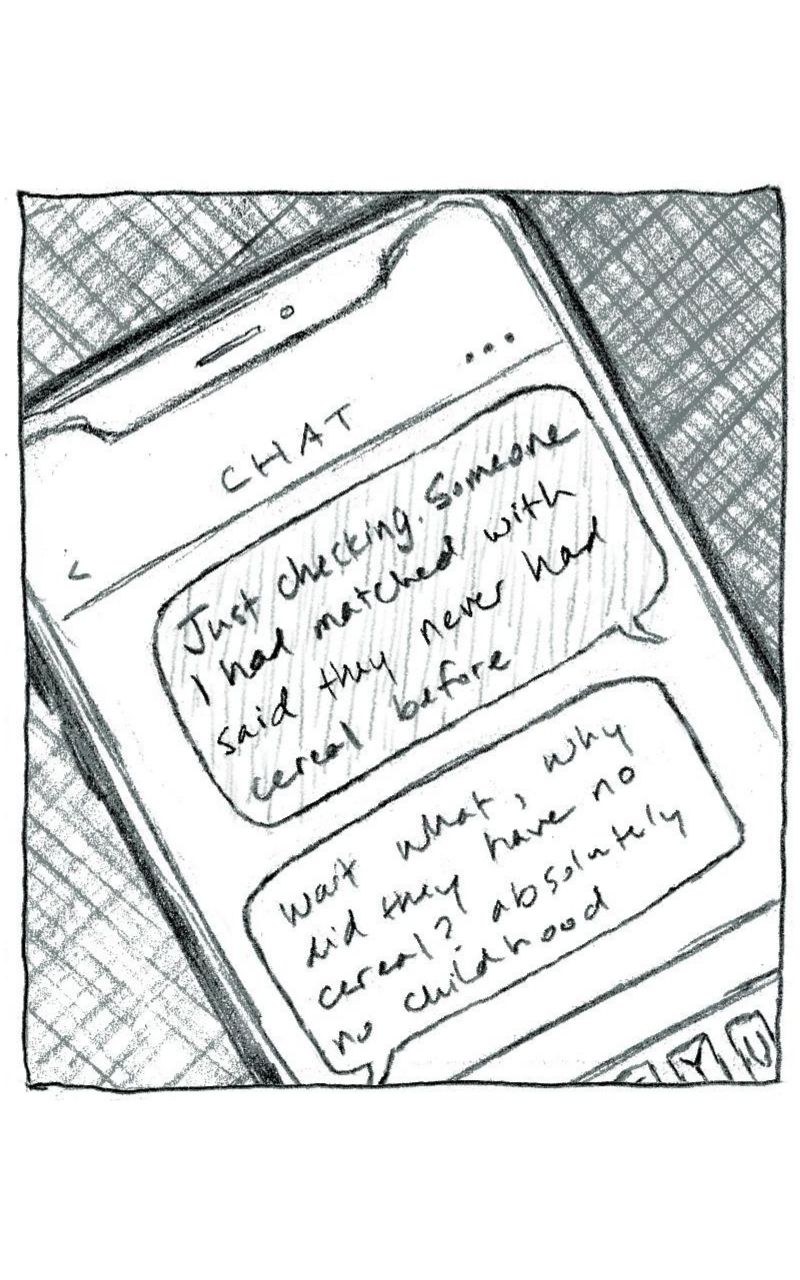 ...
CHAT
<
Just checking. Someone
I had matched with
said they never had
cereal before
wait what, why
did they have no
cereal? absolutely
no childhood
Y U